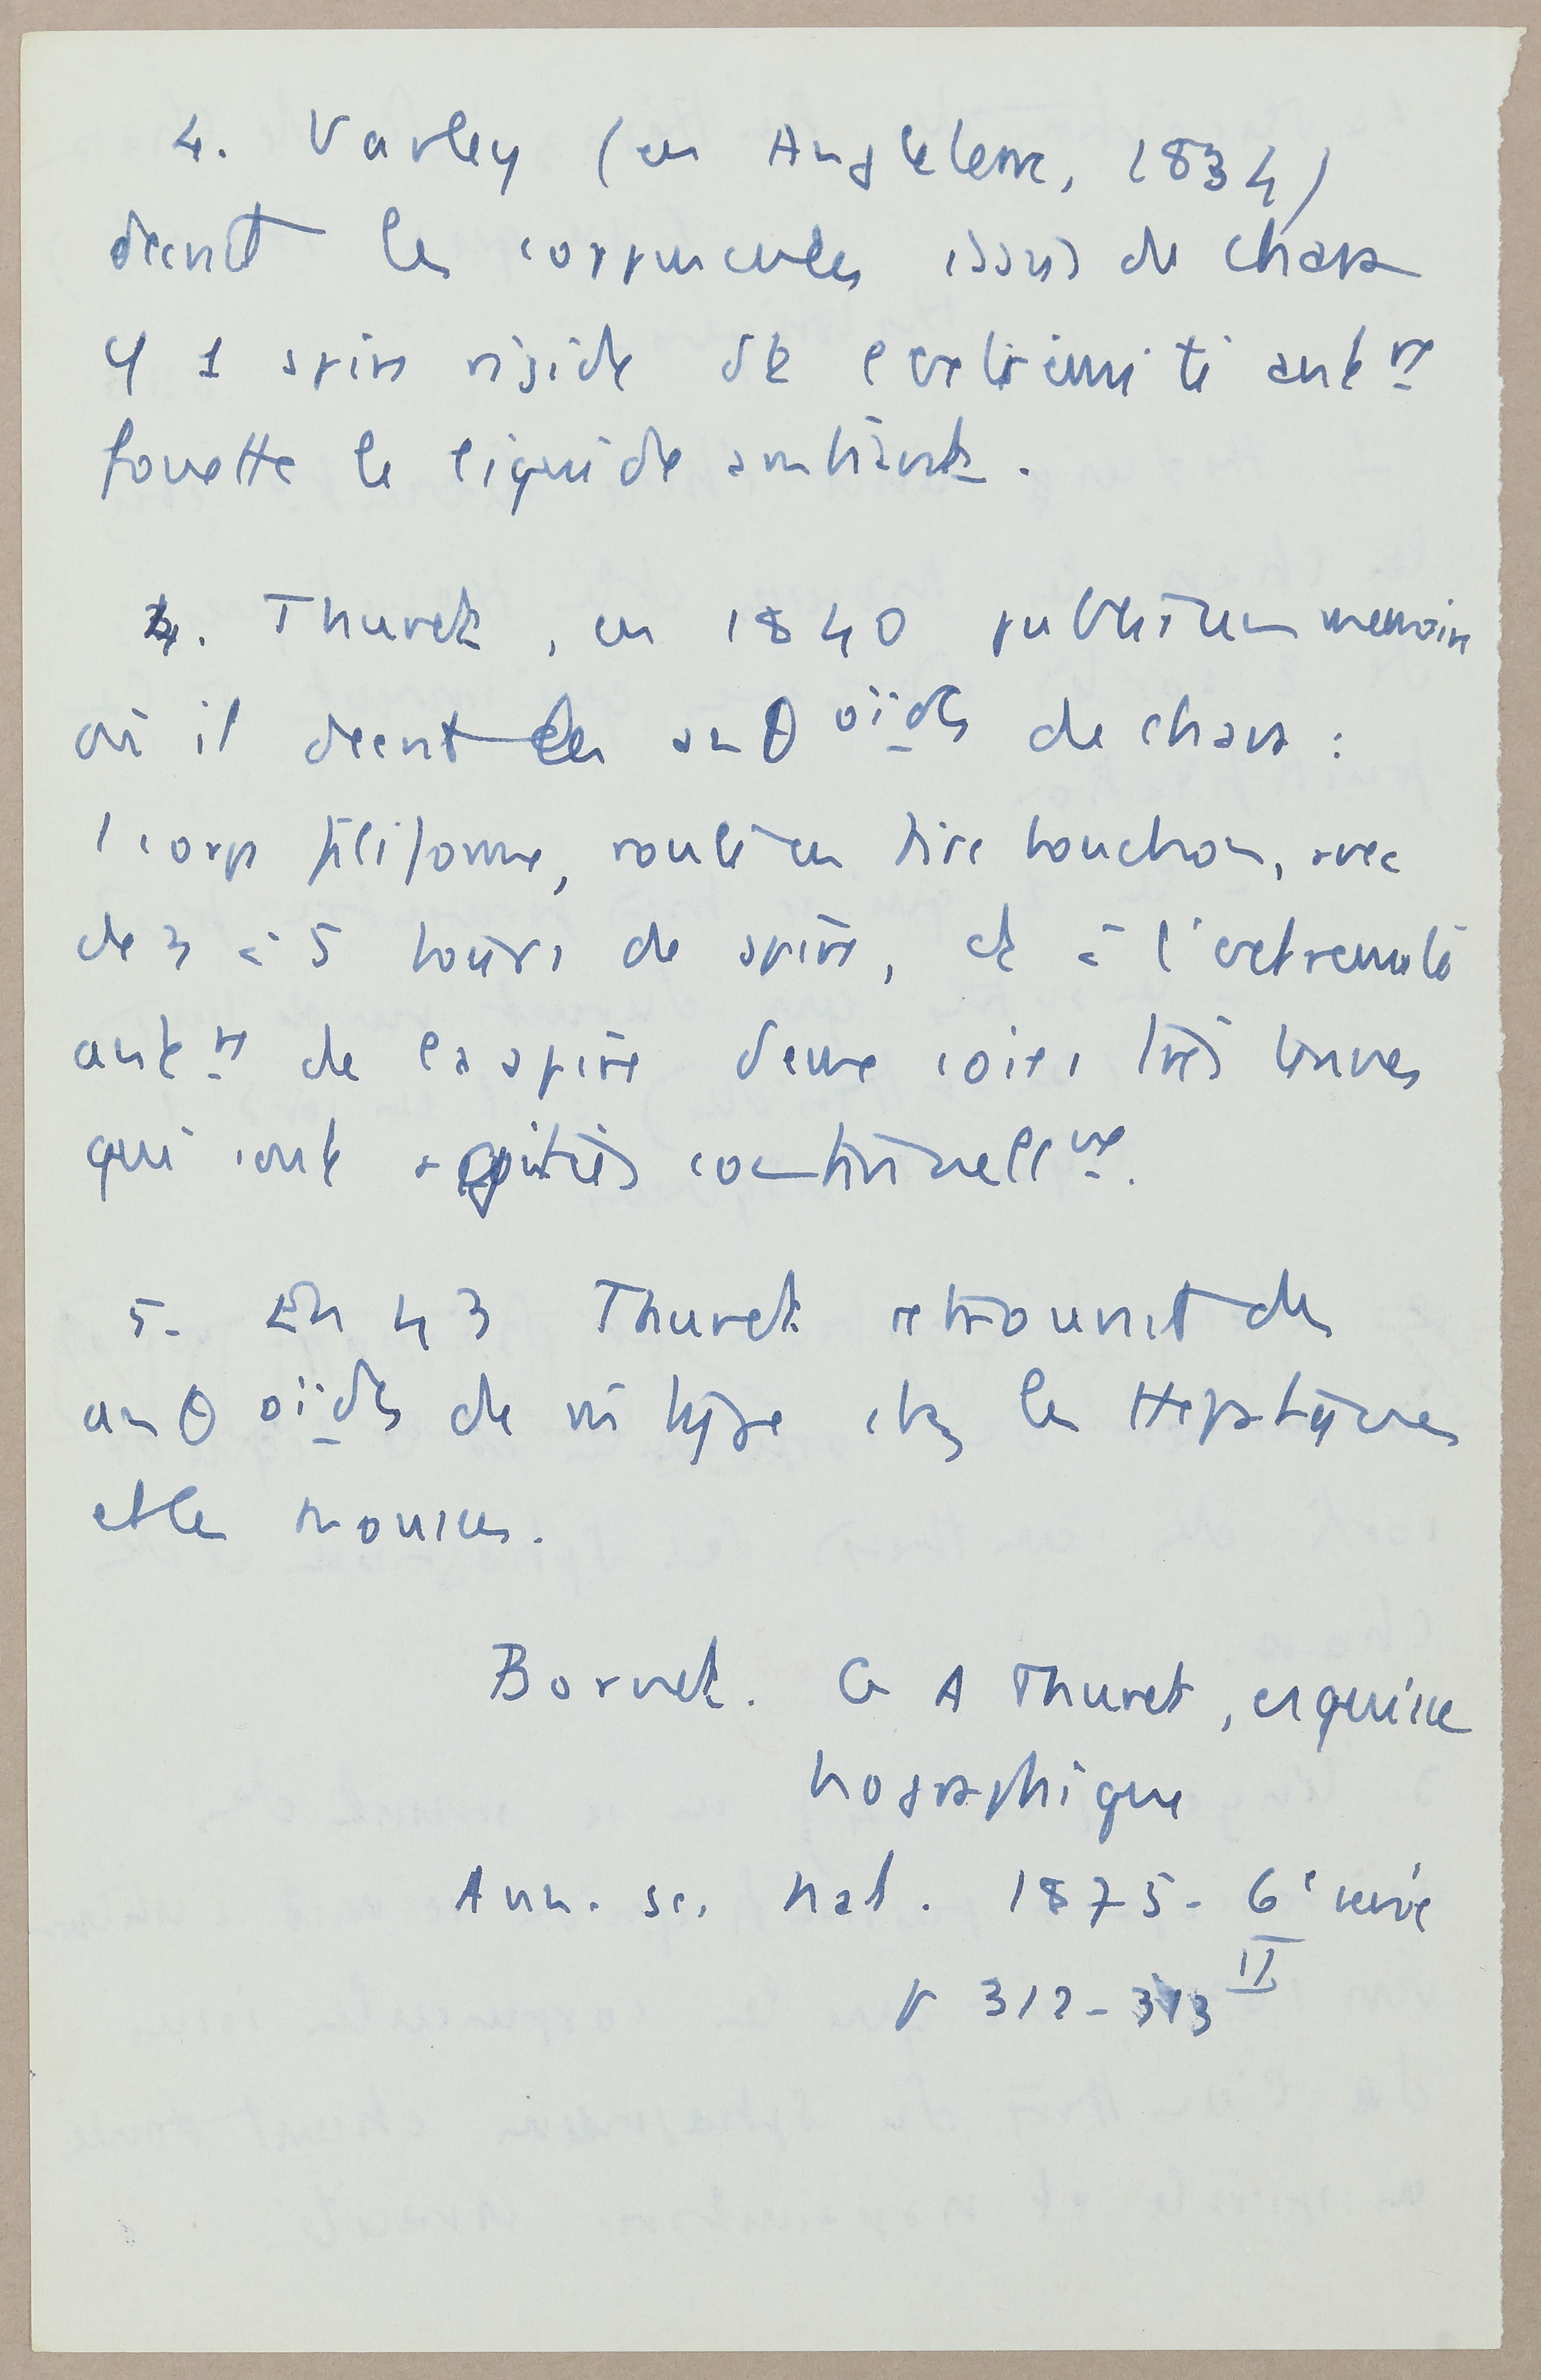 4. Varley (en Angleterre, 1834)
decrit les corpuscules issus de chara
1 spire rigide dt l'extrémité antre
fouette le liquide ambiant.
4. Thuret, en 1840 publie un memoire
où il decrit les anθoïdes de chara :
1 corp filiforme, roulé en tire bouchon, avec
de 3 à 5 tours de spire, et à l'extremité
antre de la spire deux soies très tenues
qui sont agitées continuellmt.
5. En 43 Thuret retrouvait des
anθoïdes de m type chez les Hepatiques
et les mousses.
Bornet. G A Thuret, esquisse
biographique
Ann. sc. nat. 1875- 6e serie
II
p 312-313